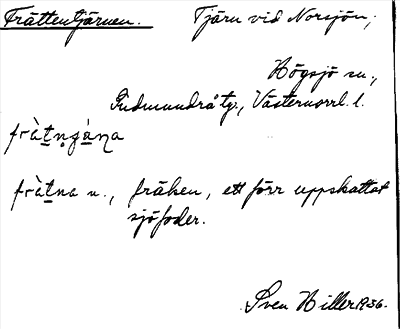 Frättentjärnen. Tjärn vid Norsjön;
Högsjö sn.,
Gudmundrå tg., Västernorrl. l.
fràtng
fràtna n., fräken, ett förr uppskattat
sjöfoder.
Sven Hiller 1936.